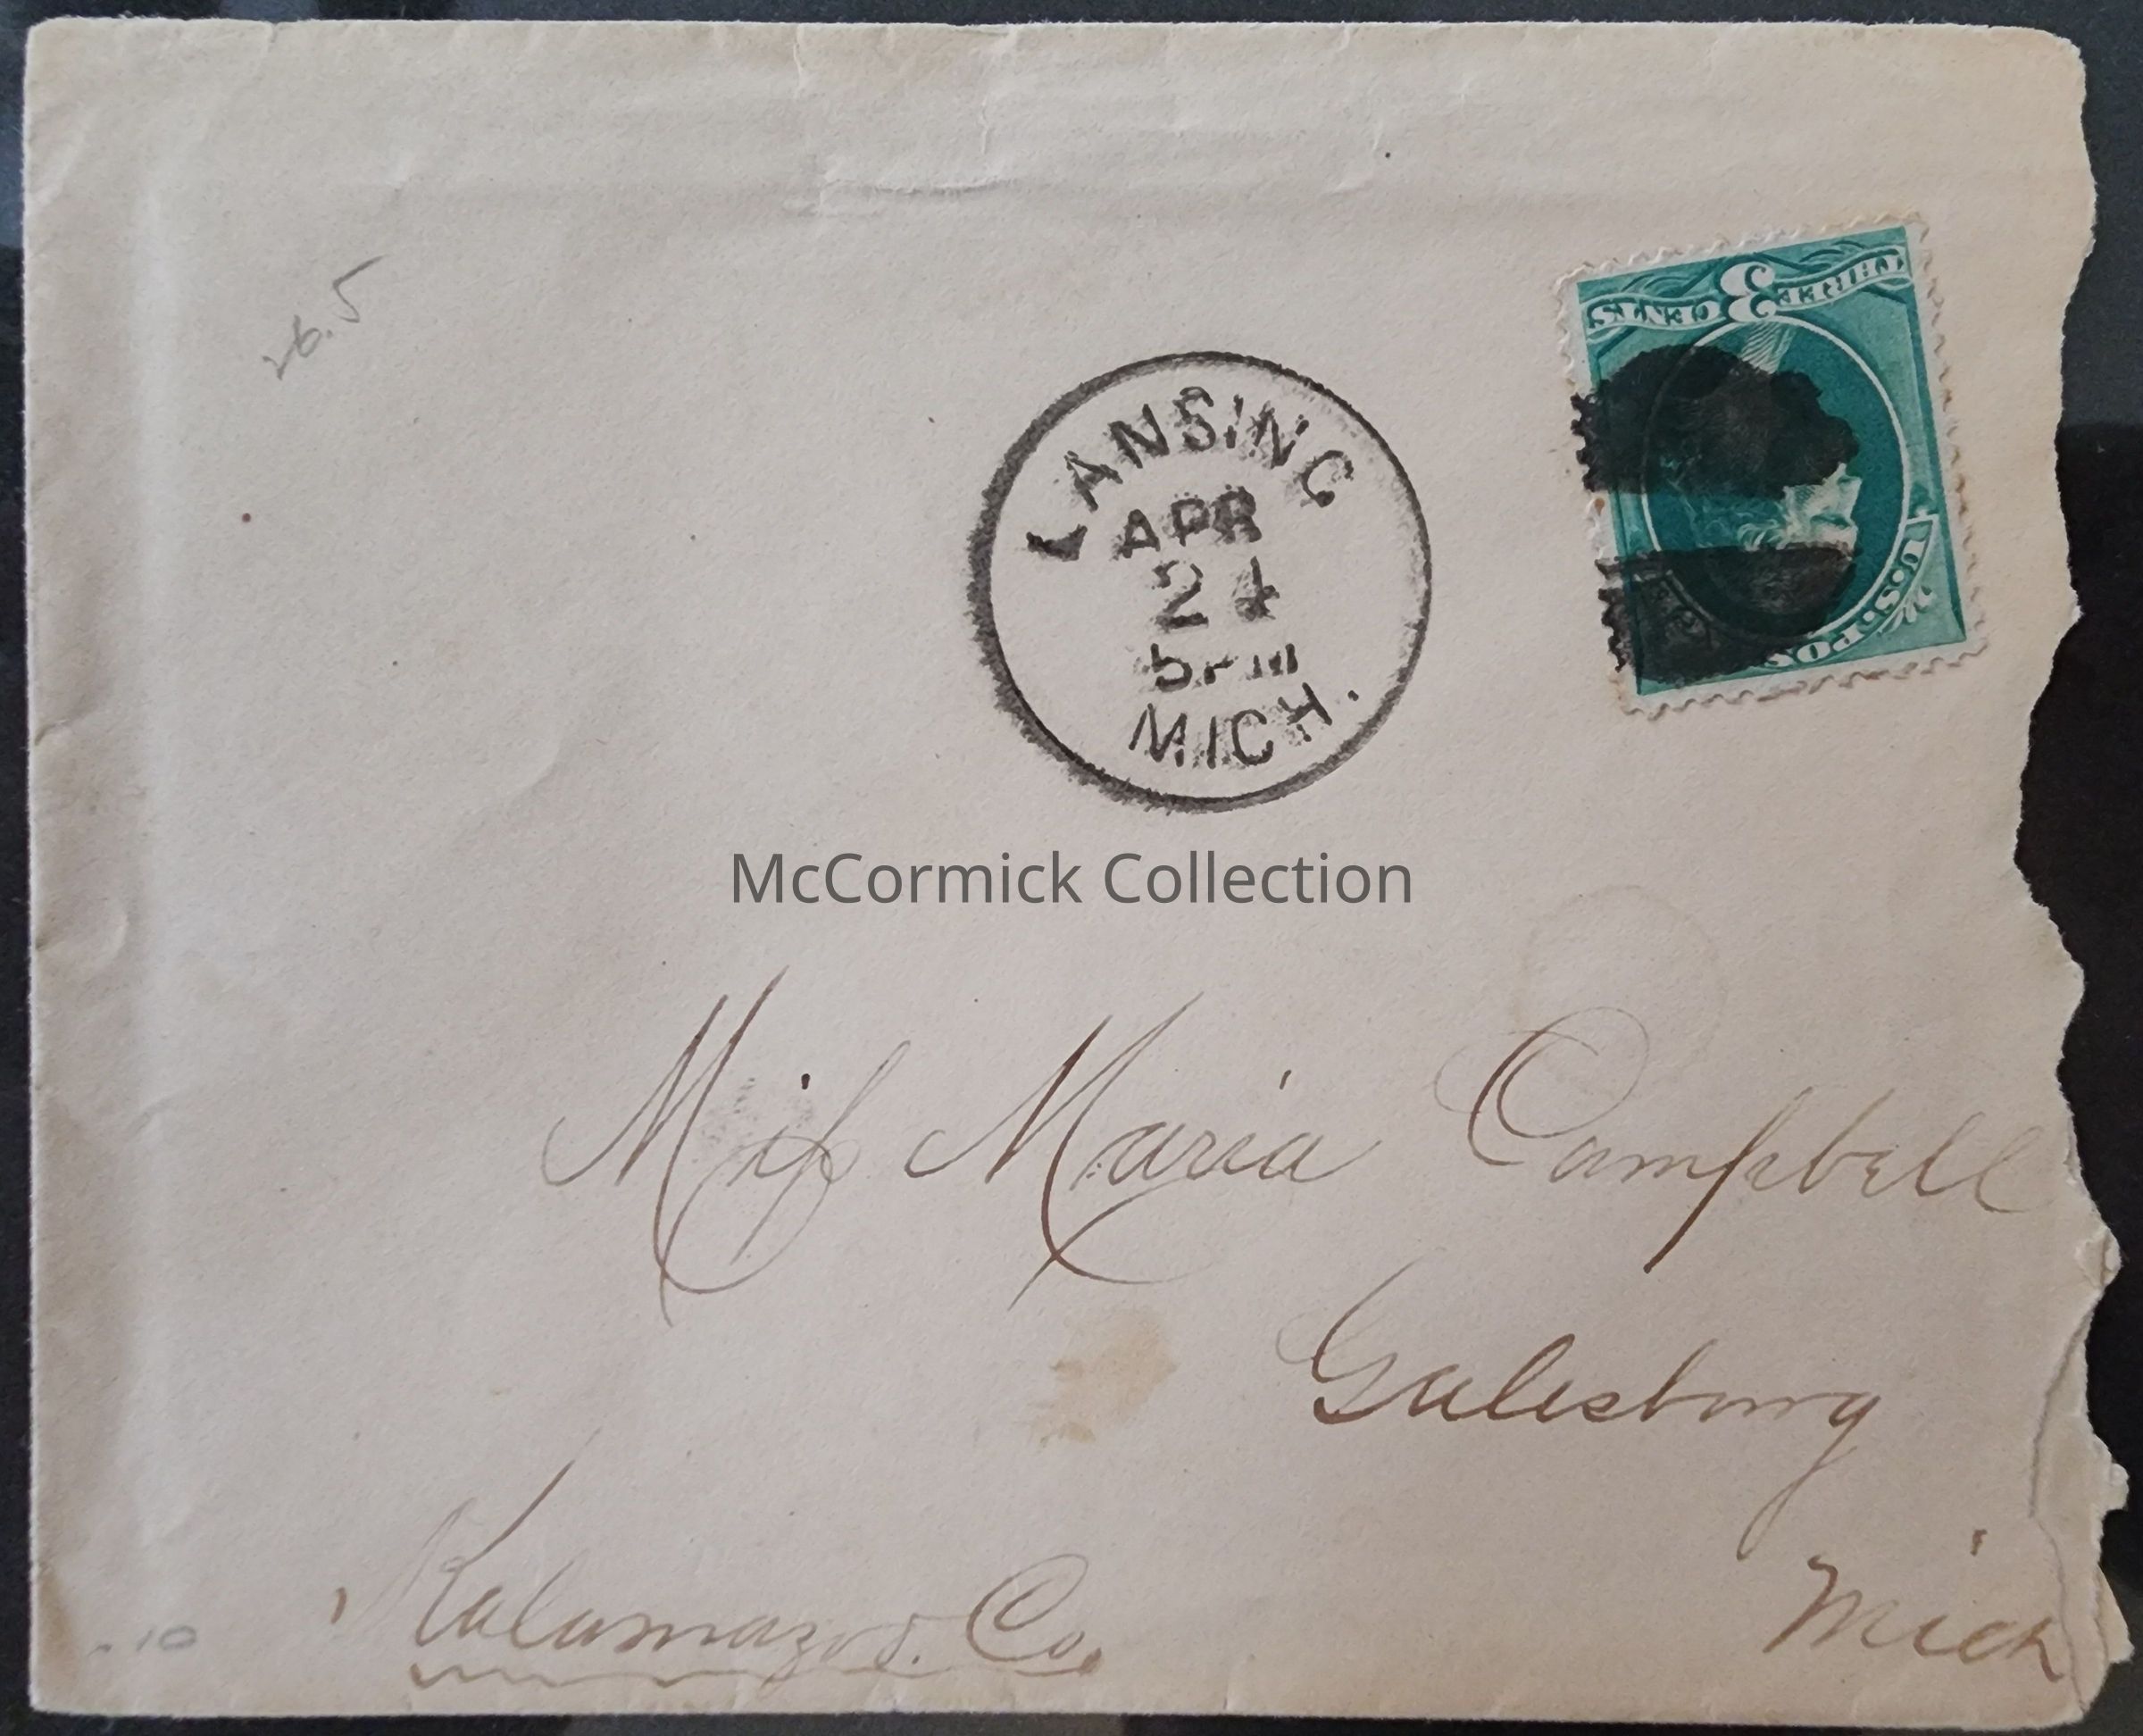 26.5
THREE 3 CENTS
U.S. POS
LANSING
APR
24
5 PM
MICH.
McCormick Collection
Miſs Maria Campbell
Galesburg
Mich
Kalamazoo. Co.
.10